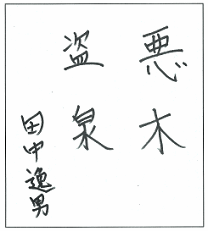 悪木
盗泉
田中逸男